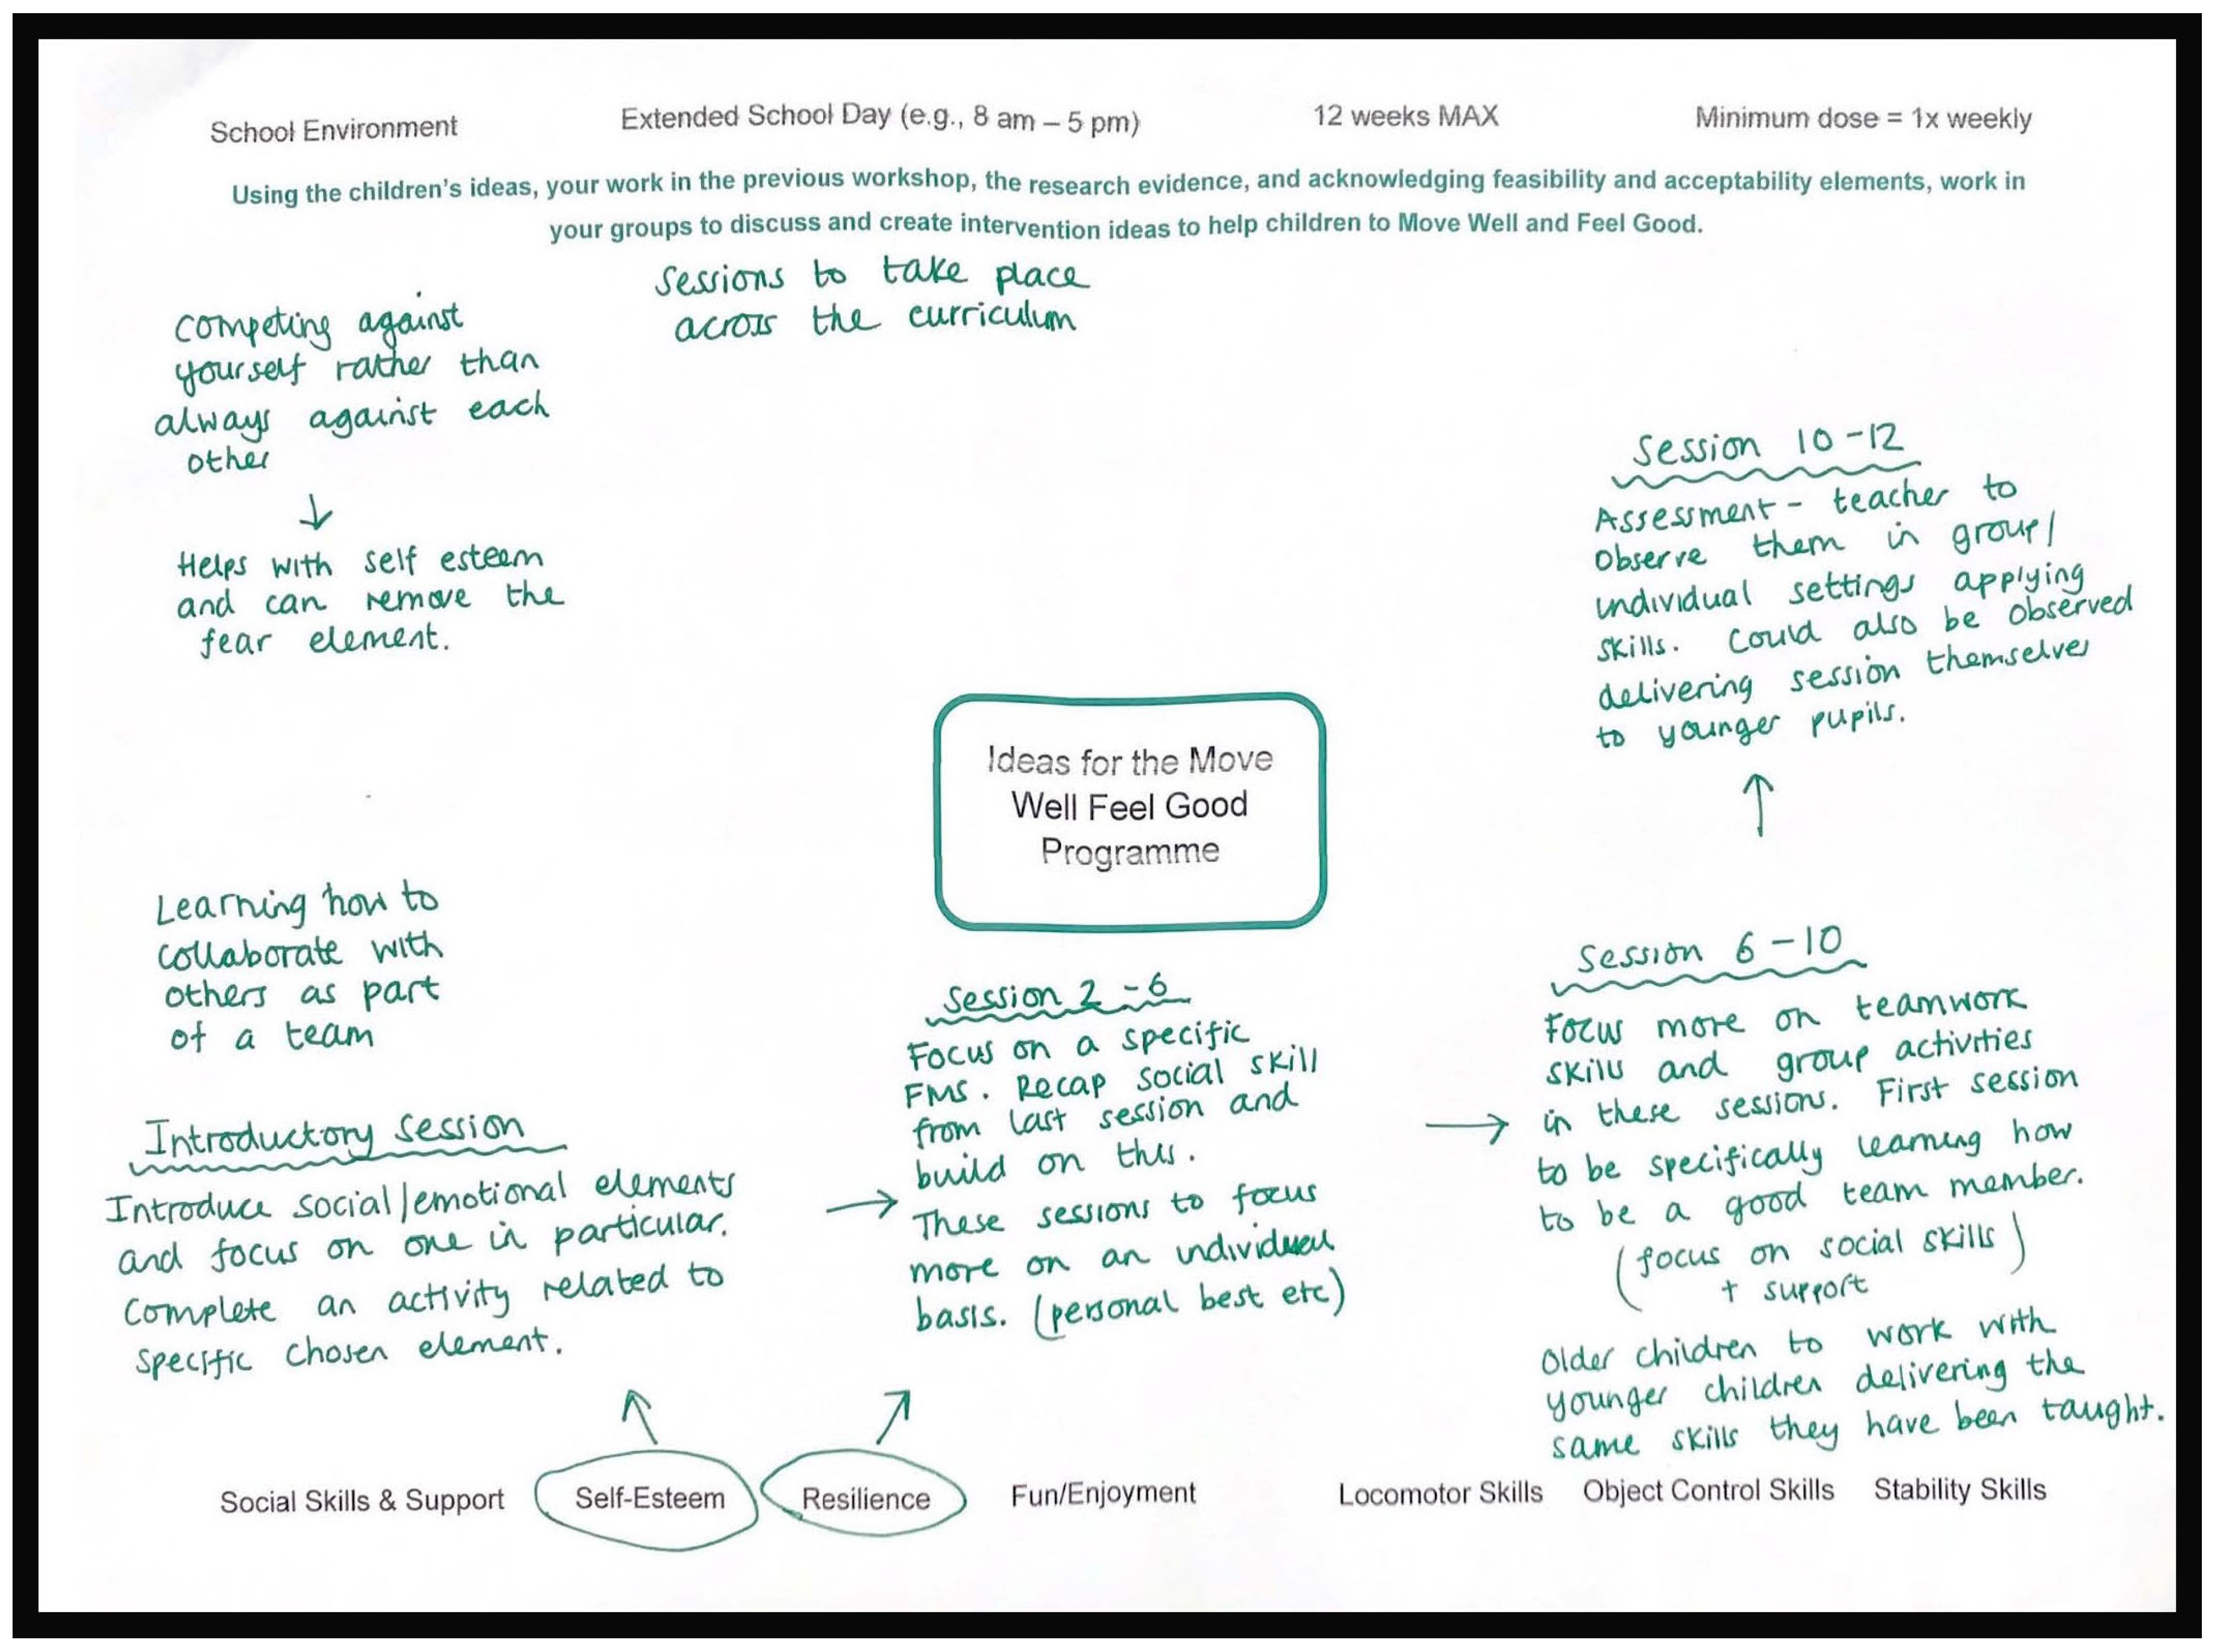 School Environment
Extended School Day (e.g., 8 am – 5 pm)
12 weeks MAX
Minimum dose = 1x weekly
Using the children's ideas, your work in the previous workshop, the research evidence, and acknowledging feasibility and acceptability elements, work in
your groups to discuss and create intervention ideas to help children to Move Well and Feel Good.
Sessions to take place
across the curriculum
Competing against
yourself rather than
always against each
other
↓
Helps with self esteem
and can remove the
fear element.
Ideas for the Move
Well Feel Good
Programme
Learning how to
collaborate with
others as part
of a team
Introductory session
Introduce social/emotional elements
and focus on one in particular.
Complete an activity related to
specific chosen element.
→
Session 2 - 6
Focus on a specific
FMS. Recap social skill
from last session and
build on this.
These sessions to focus
more on an individual
basis. (personal best etc)
→
Session 6 - 10
Focus more on teamwork
skills and group activities
in these sessions. First session
to be specifically learning how
to be a good team member.
(focus on social skills)
+ support
Older children to work with
younger children delivering the
same skills they have been taught.
↑
Session 10 - 12
Assessment - teacher to
observe them in group/
individual settings applying
skills. Could also be observed
delivering session themselves
to younger pupils.
Social Skills & Support
Self-Esteem
Resilience
Fun/Enjoyment
Locomotor Skills
Object Control Skills
Stability Skills